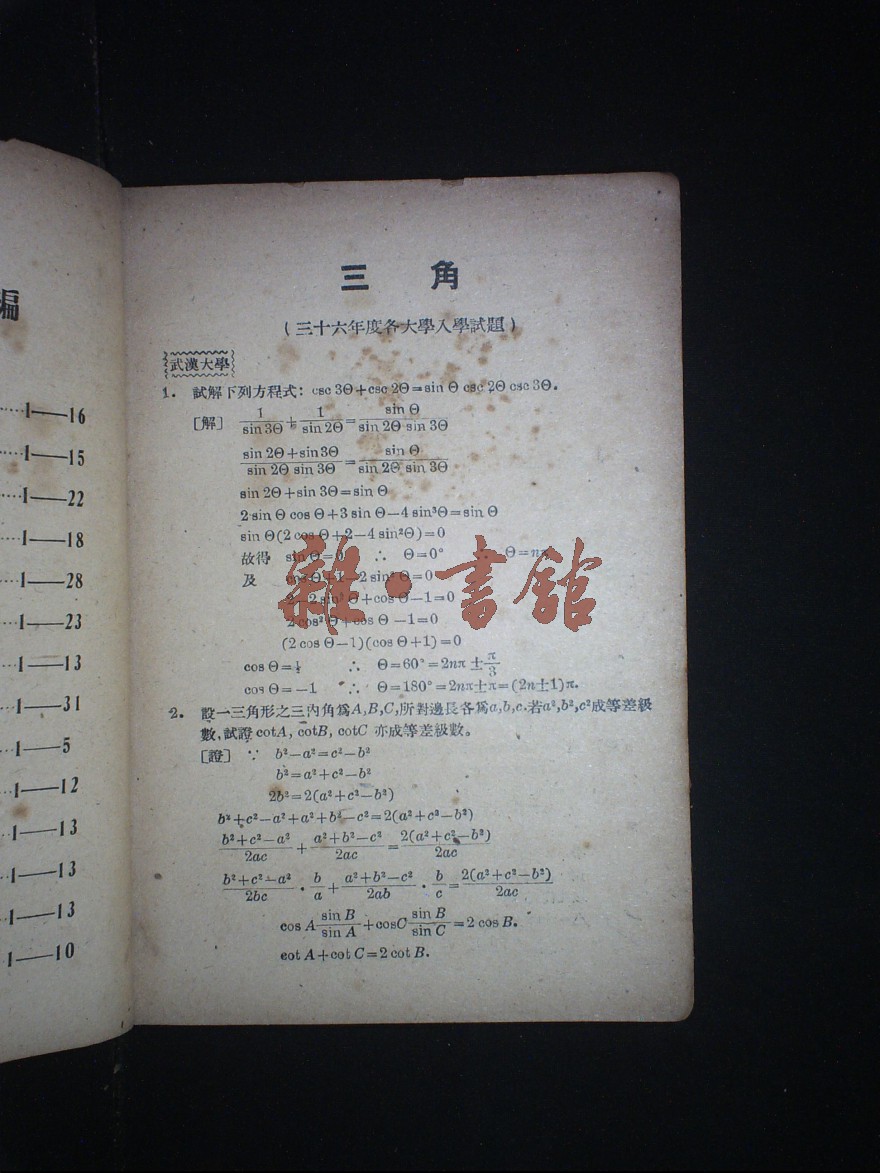 編
……1——16
……1——15
……1——22
……1——18
……1——28
……1——23
……1——13
……1——31
……1——5
……1——12
……1——13
……1——13
……1——13
1——10
三 角
(三十六年度各大學入學試題)
武漢大學
1. 試解下列方程式: csc 3Θ+csc 2Θ=sin Θ csc 2Θ csc 3Θ.
[解] 1/sin 3Θ + 1/sin 2Θ = sin Θ/sin 2Θ sin 3Θ
sin 2Θ+sin3Θ/sin 2Θ sin 3Θ = sin Θ/sin 2Θ sin 3Θ
sin 2Θ+sin 3Θ=sin Θ
2 sin Θ cos Θ+3 sin Θ—4 sin³Θ=sin Θ
sin Θ(2 cos Θ+2—4 sin²Θ)=0
故得 sin Θ=0 ∴ Θ=0° ∴ Θ=nπ
及 cos Θ+1—2 sin² Θ=0
2—2 sin² Θ+cos Θ—1=0
2 cos² Θ+cos Θ —1=0
(2 cos Θ—1)(cos Θ+1)=0
cos Θ=½ ∴ Θ=60°=2nπ±π/3
cos Θ=—1 ∴ Θ=180°=2nπ±π=(2n±1)π.
2. 設一三角形之三內角為A,B,C,所對邊長各為a,b,c.若a²,b²,c²成等差級
數,試證 cotA, cotB, cotC 亦成等差級數。
[證] ∵ b²—a²=c²—b²
b²=a²+c²—b²
2b²=2(a²+c²—b²)
b²+c²—a²+a²+b²—c²=2(a²+c²—b²)
b²+c²—a²/2ac + a²+b²—c²/2ac = 2(a²+c²—b²)/2ac
b²+c²—a²/2bc · b/a + a²+b²—c²/2ab · b/c = 2(a²+c²—b²)/2ac
cos A sin B/sin A +cosC sin B/sin C =2 cos B.
cot A+cot C=2 cot B.
雜·書館